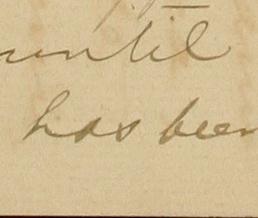 until
has been